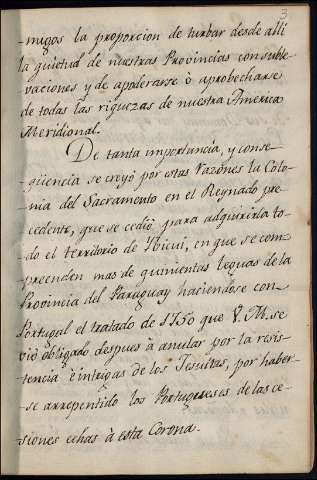 3
migos la proporcion de turbar desde alli
la quietud de nuestras Provincias con suble-
vaciones y de apoderarse ò aprobecharse
de todas las riquezas de nuestra America
Meridional.
De tanta importancia, y conse-
qüencia se creyó por estas razones la Colo-
nia del Sacramento en el Reynado pre-
cedente, que se cedió para adquirirla to-
do el territorio de Ibicui, en que se com-
preenden mas de quinientas leguas de la
Provincia del Paraguay haciendose con
Portugal el tratado de 1750 que V. M. se
vió obligado despues à anular por la resis-
tencia è intrigas de los Jesuitas, por haber-
se arrepentido los Portugueses de las ce-
siones echas à esta Corona.